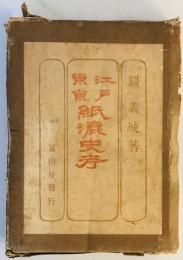 關義城著
江戸
東京
紙漉史考
冨山房發行